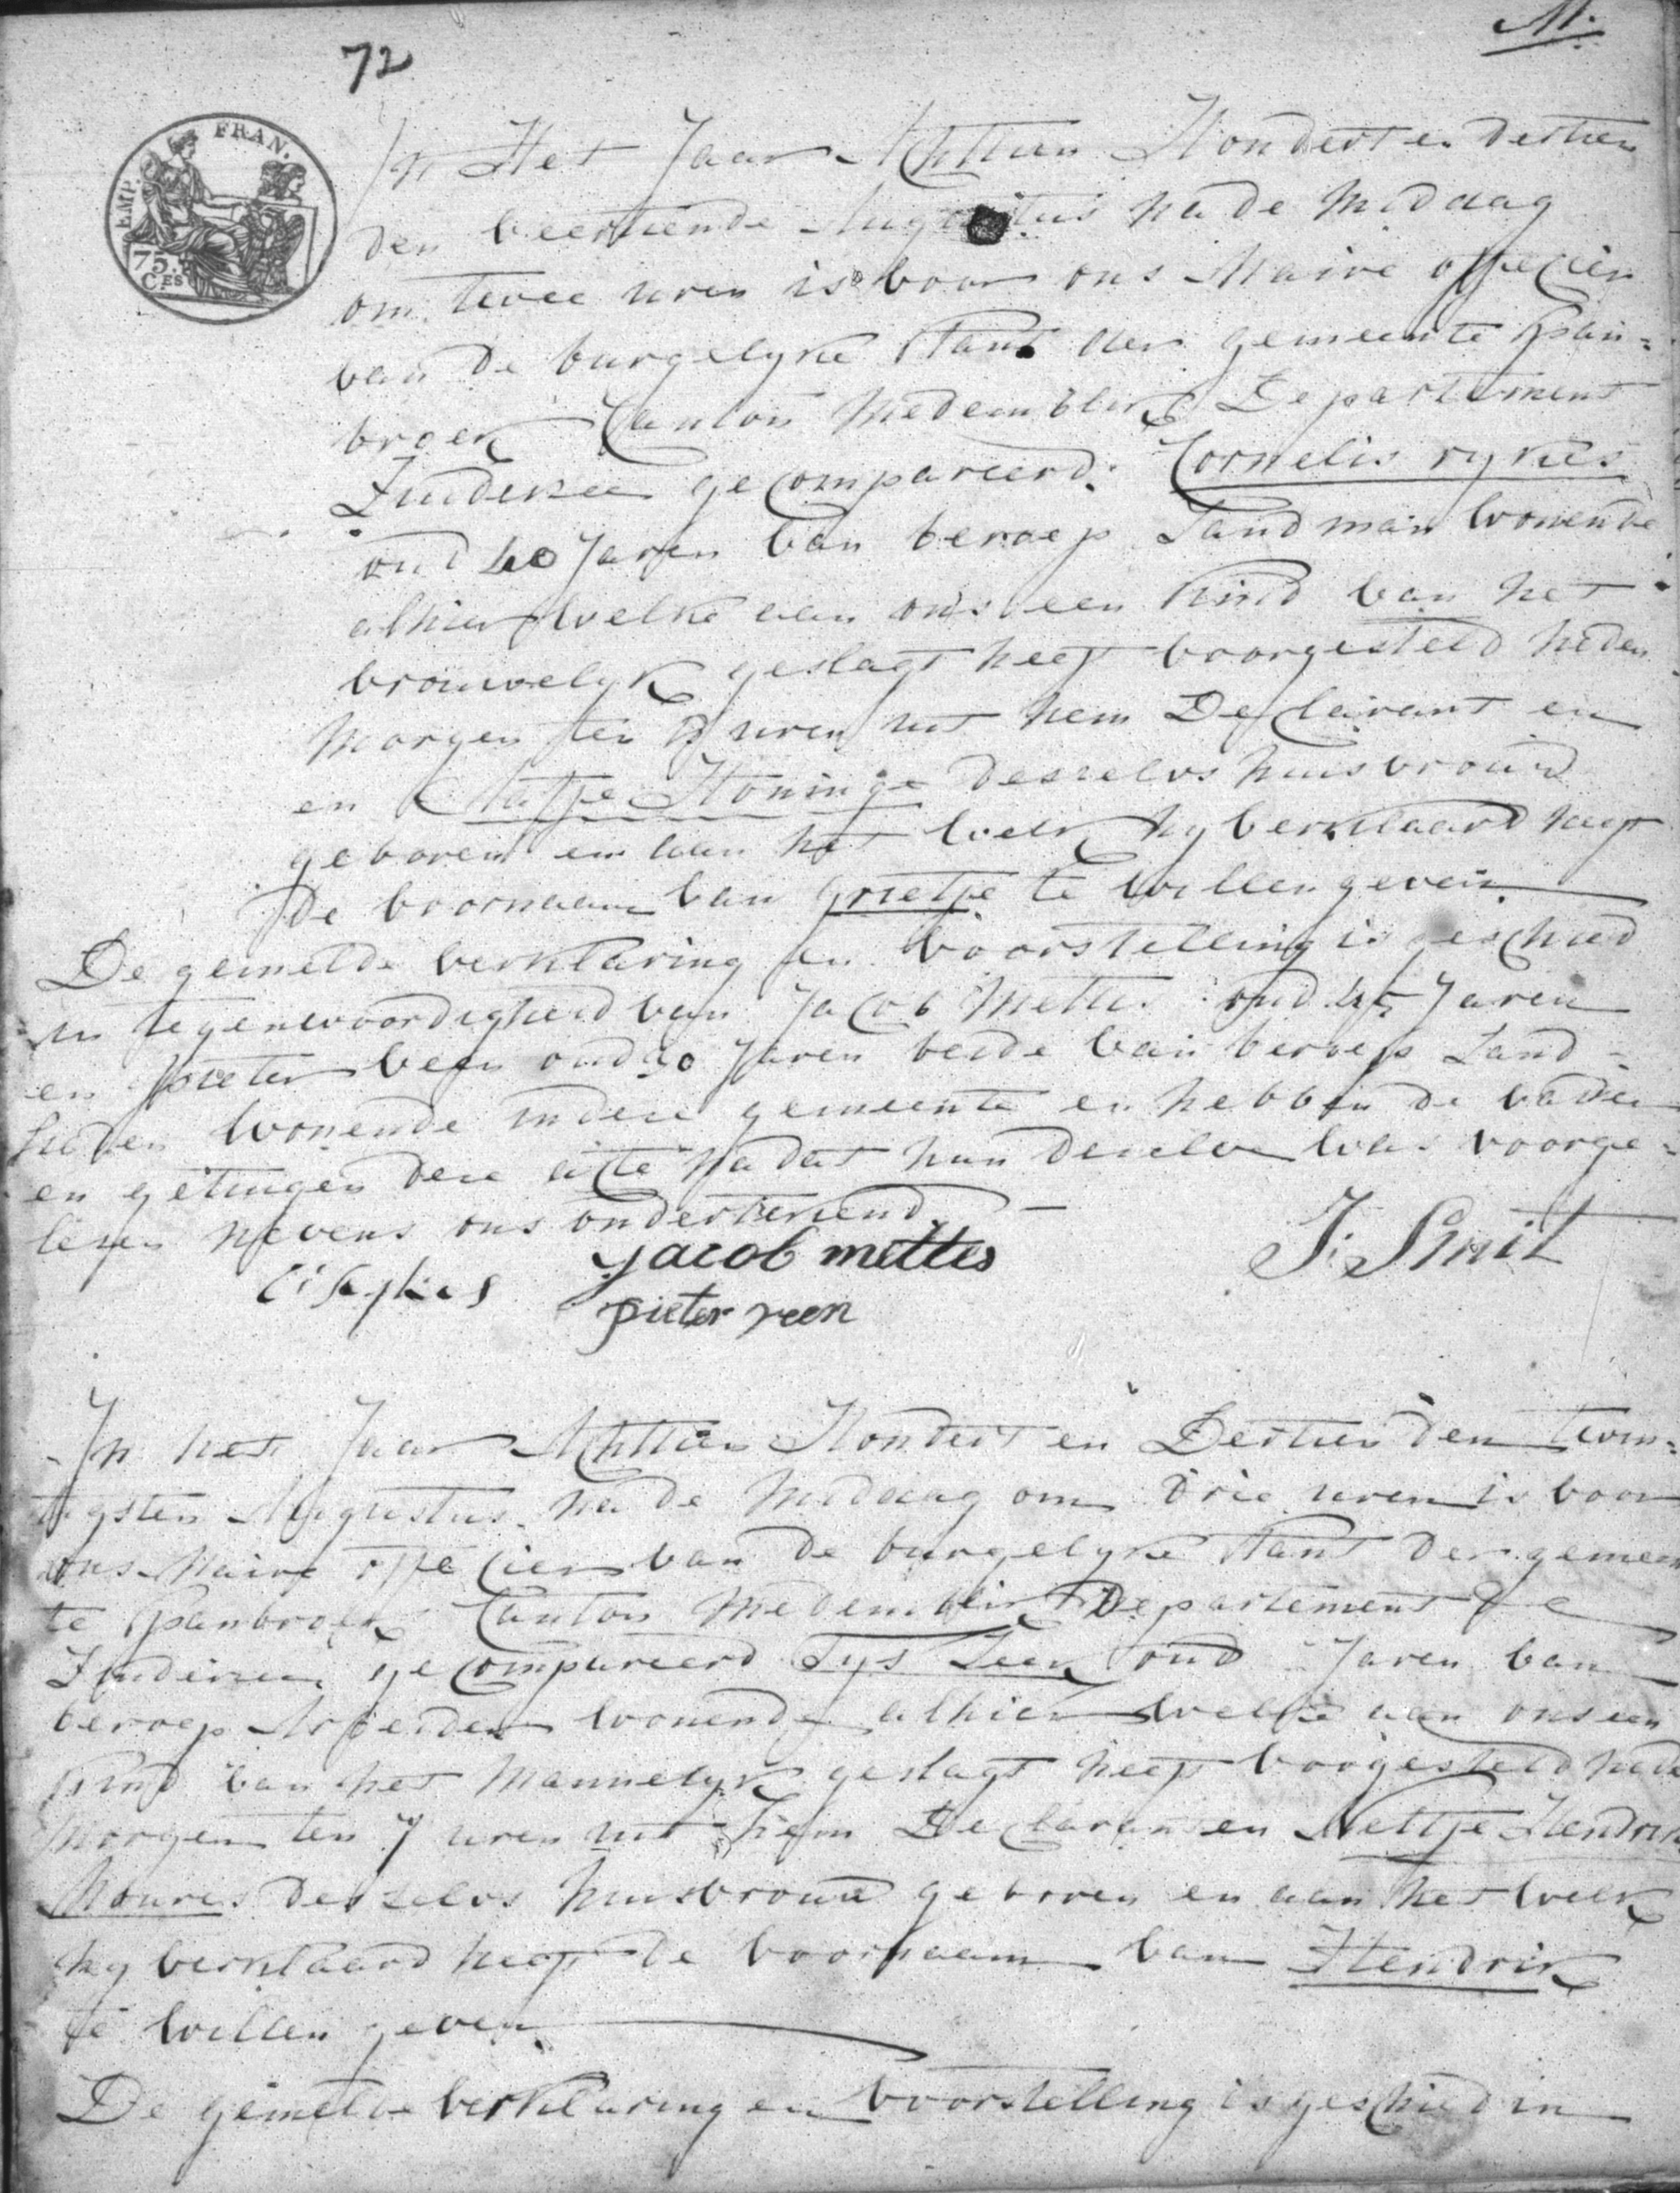 72
M.
EMP. FRAN.
75. CES
In Het Jaar Achttien Hondert en dertien
den veertiende Augustus na de middag
om twee uren is voor ons Maire offecier
van de burgelyke Stant der gemeente Span=
broek Canton Medemblik Departement
Zuiderzee gecompareerd: Cornelis rykes
oud 40 Jaren van beroep Landman wonende
alhier welke aan ons een kind van het
vrouwelyk geslagt heeft voorgesteld heden
morgen ten uren uit hem Declarant en
en Aafje Koninge deszelvs huisvrouw
geboren en aan het welk hy verklaard heeft
De voornaam van grietje te willen geven
De gemelde verklaring en voorstelling is geschied
in tegenwoordigheid van Jacob Mettes oud 45 Jaren
en Pieter veen oud 20 Jaren beide van beroep Land=
lieden wonende in deze gemeente en hebben de vader
en getuigen deze acte na dat hun dezelve was voorge=
lezen nevens ons ondertekend
C: Rykes jacob mettes J: Smit
pieter veen
In het Jaar Achttien Hondert en Dertien den twin=
tigsten Augustus na de middag om drie uren is voor
ons Maire offecier van de burgelyke Stant der gemeen
te Spanbroek Canton Medemblik Departement de
Zuiderzee gecompareerd Tys Leek oud Jaren van
beroep Arbeider wonende alhier welke aan ons een
kind van het mannelyk geslagt heeft voorgesteld hede
morgen ten 7 uren uit hem Declarant en Neltje Hendrik
Moures deszelvs huisvrouw geboren en aan het welk
hy verklaard heeft de voornaam van Hendrik
te willen geven
De gemelde verklaring en voorstelling is geschied in